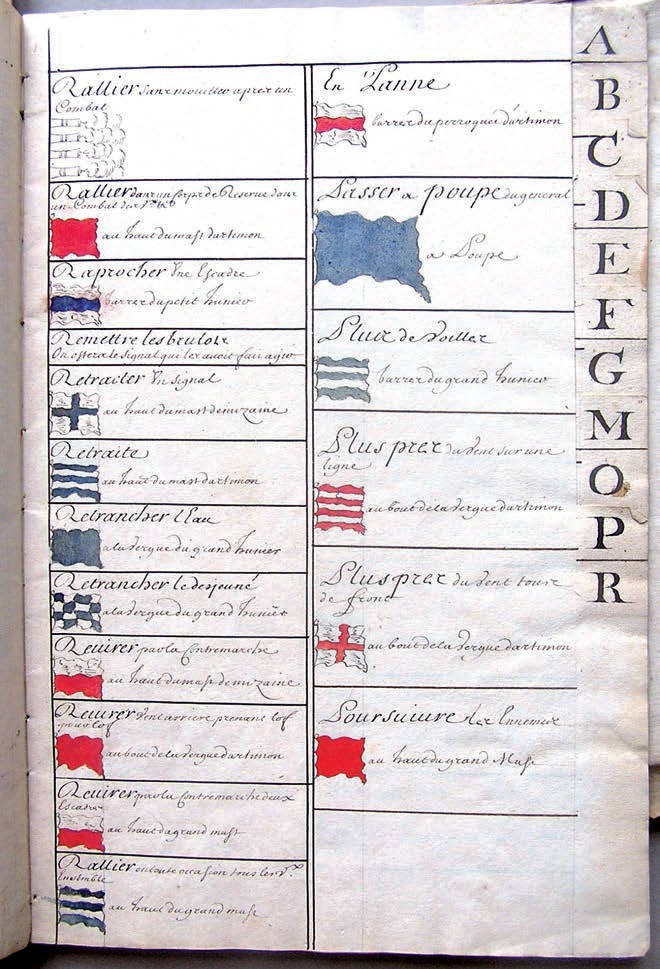 Rallier sans mouiller apres un
Combat
Rallier dans un Corps de Reserve dans
un Combat des Vx
au haut du mast dartimon
Raprocher Une Escadre
barrer du petit hunier
Remettre les brulots
On ostera le signal qui les avoit fait
Retraiter Un signal
au haut du mast de mizaine
Retraite
au haut du mast dartimon
Retrancher lEau
a la vergue du grand hunier
Retrancher le desjeuné
a la vergue du grand hunier
Reuirer par la Contremarche
au haut du mast de mizaine
Reuirer Vent arriere prenant lof
pour lof
au bout de la Vergue dartimon
Reuirer par la Contremarche deux
Escadres
au haut du grand mast
Rallier en toute occasion tous les Vx
Ensemble
au haut du grand mast
En Panne
barrer du perroquet dartimon
Passer a poupe du general
a Poupe
Plus de Voilles
barrer du grand hunier
Plus pres du Vent sur une
ligne
au bout de la Vergue dartimon
Plus pres du Vent tous
de front
au bout de la Vergue dartimon
Poursuiure les Ennemis
au haut du grand Mast
A
B
C
D
E
F
G
M
O
P
R